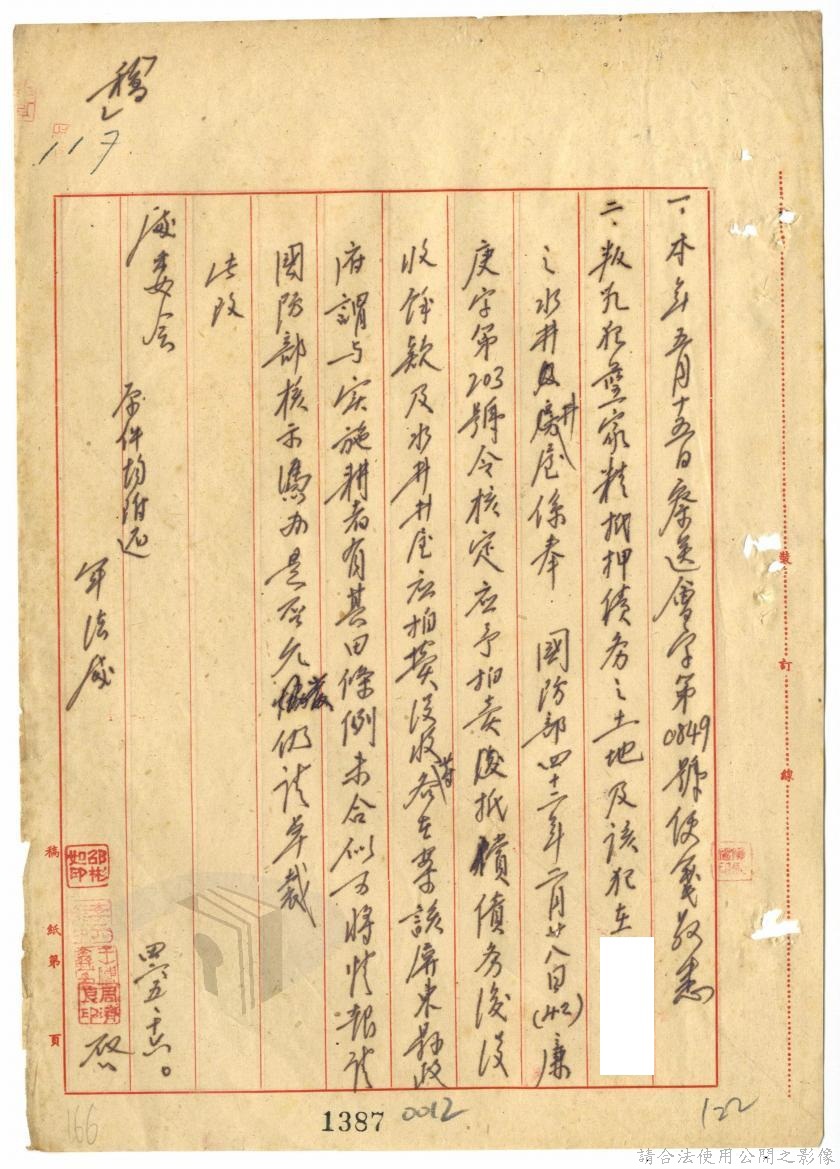 稿
117
一、本年五月十五日察送會字第0849號便箋敬悉
二、叛亂犯藍家精抵押債務之土地及該犯在
之水井及井房屋係奉 國防部四十二年二月廿八日(42)廉
庚字第203號令核定应予拍卖後抵償債务後没
收餘款及水井井屋应拍賣没收者在案該屏東縣政
府謂与实施耕者有其田條例未合似可將情報請
國防部核示憑办是否允當仍請卓裁
此致
處委会 原件均附还
軍法處
四六五、十六。
啟
裝
訂
線
稿紙第 頁
邵彬如印
1387
0012
122
166
請合法使用公開之影像